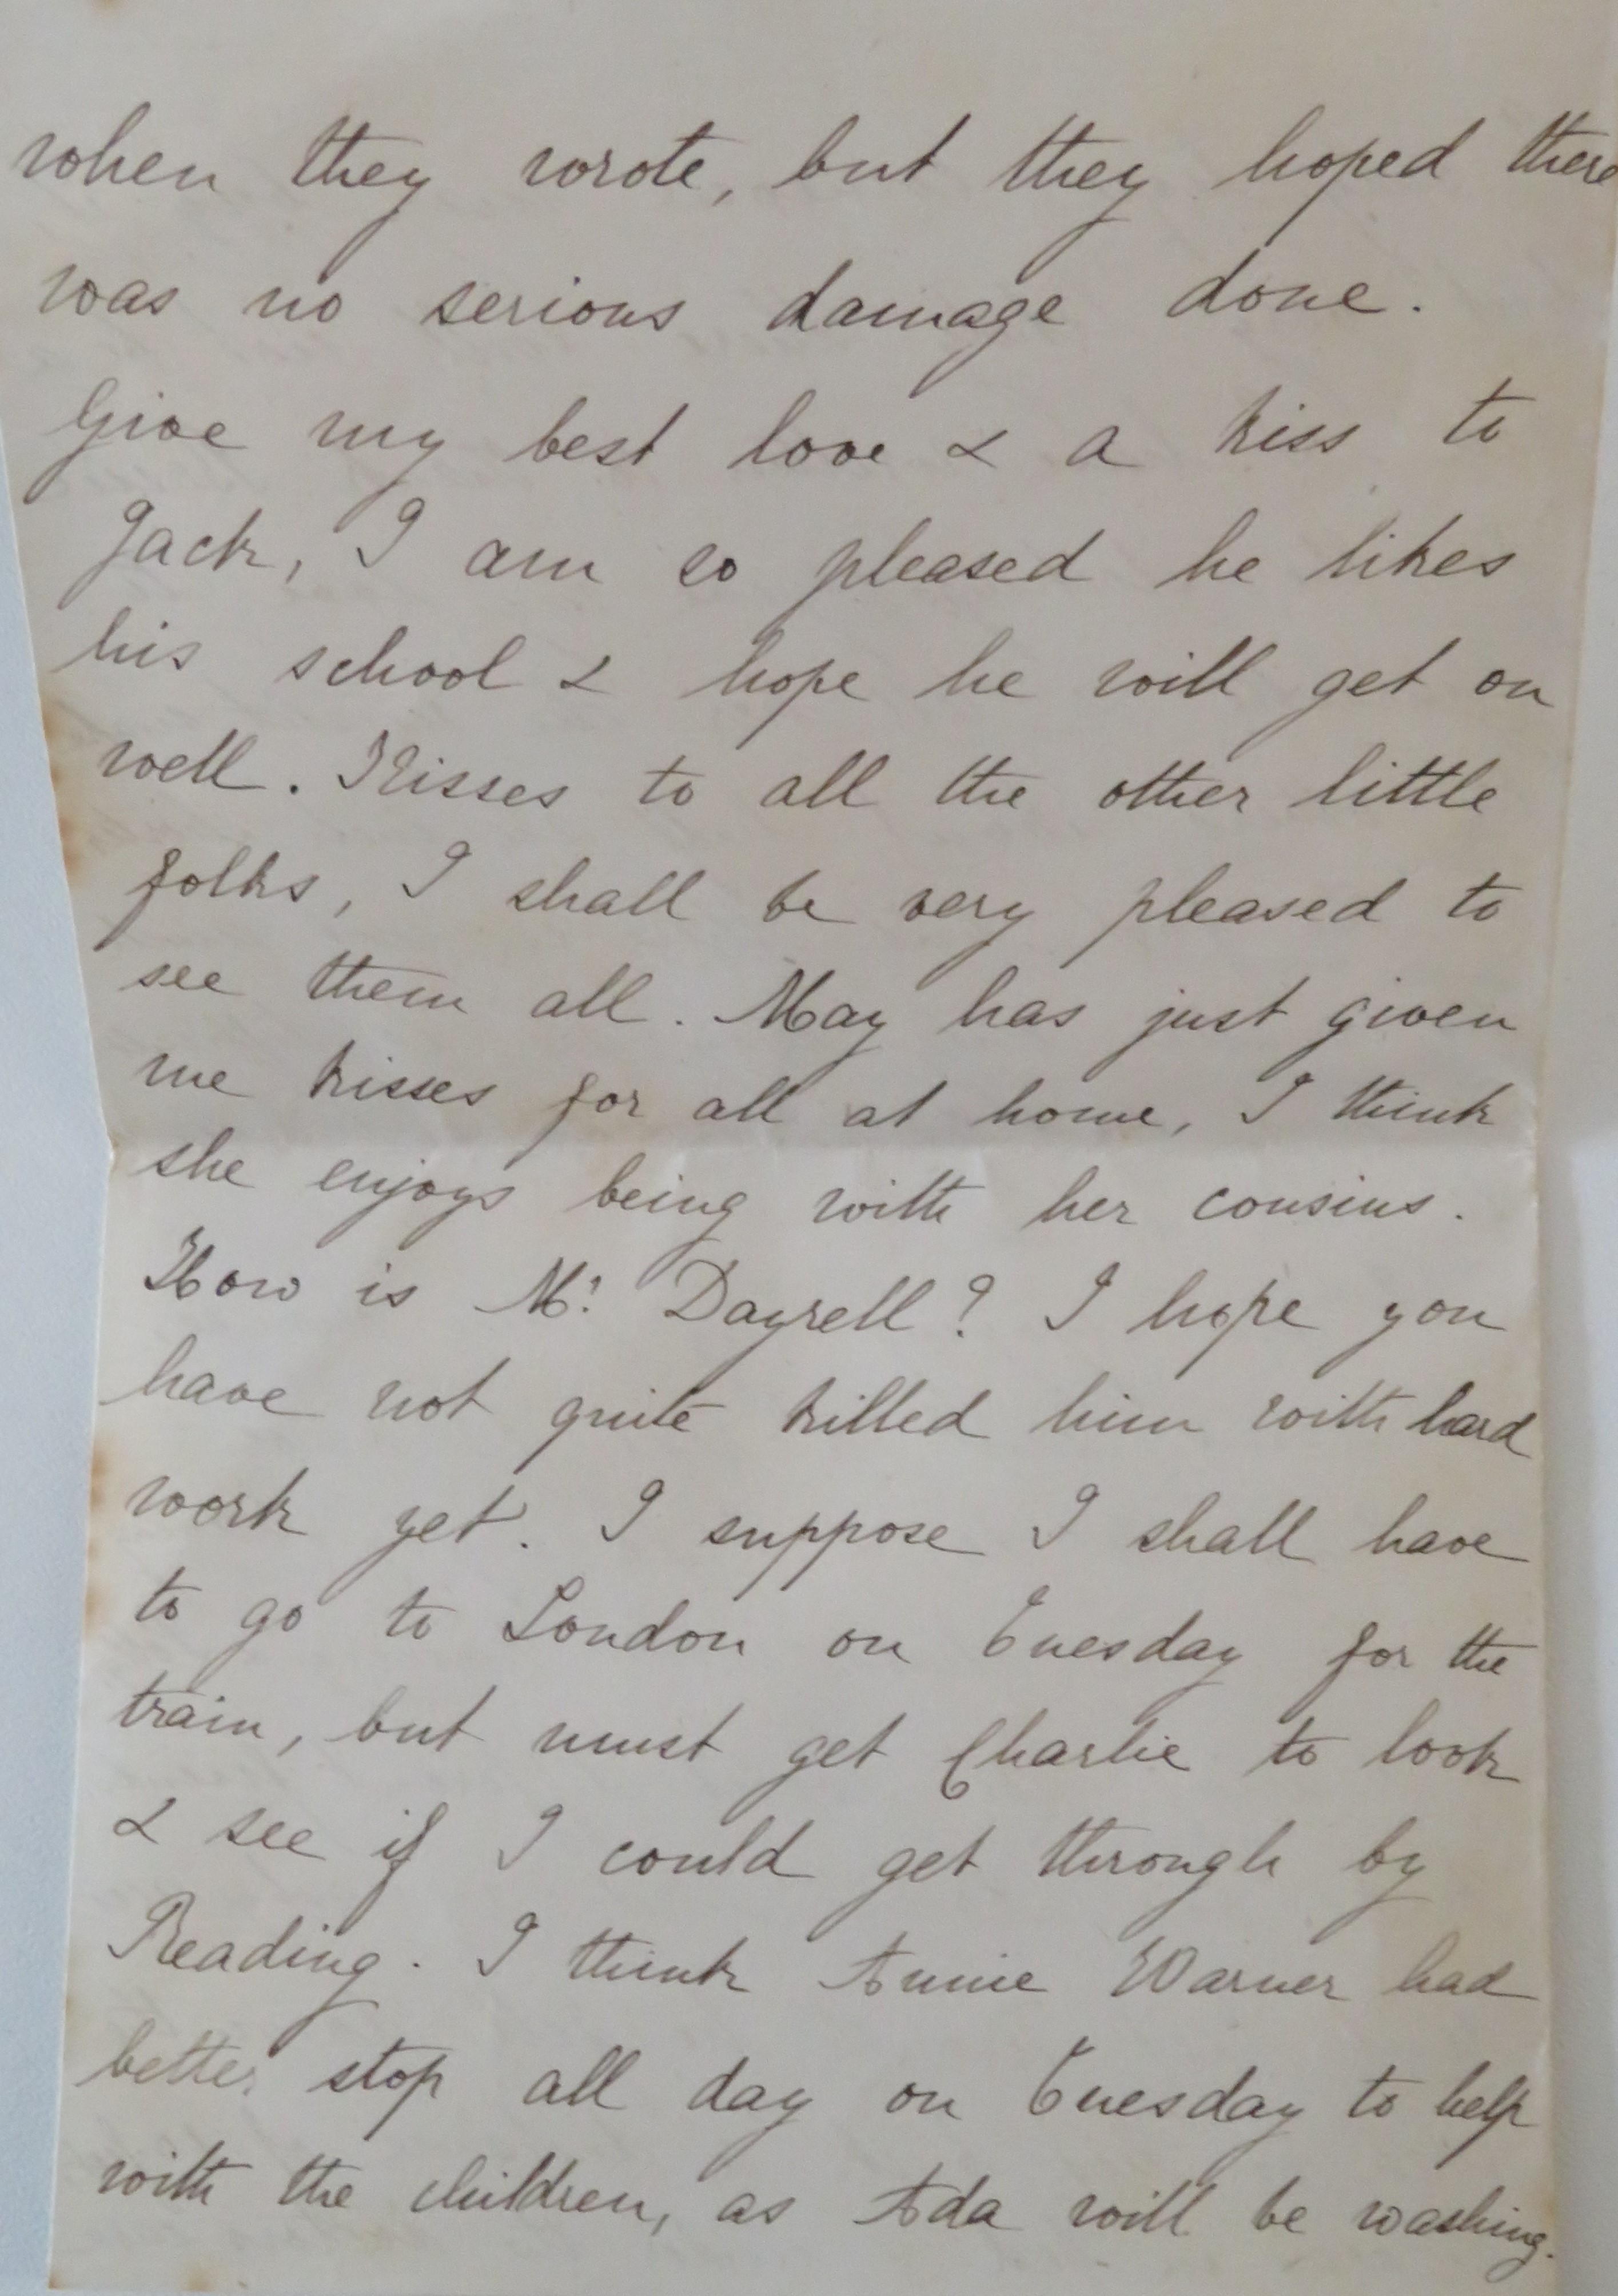 when they wrote, but they hoped there
was no serious damage done.
Give my best love & a kiss to
Jack, I am so pleased he likes
his school & hope he will get on
well. Kisses to all the other little
folks, I shall be very pleased to
see them all. May has just given
me kisses for all at home, I think
she enjoys being with her cousins.
How is Mr. Dayrell? I hope you
have not quite killed him with hard
work yet. I suppose I shall have
to go to London on Tuesday for the
train, but must get Charlie to look
& see if I could get through by
Reading. I think Annie Warner had
better stop all day on Tuesday to help
with the children, as Ada will be washing.